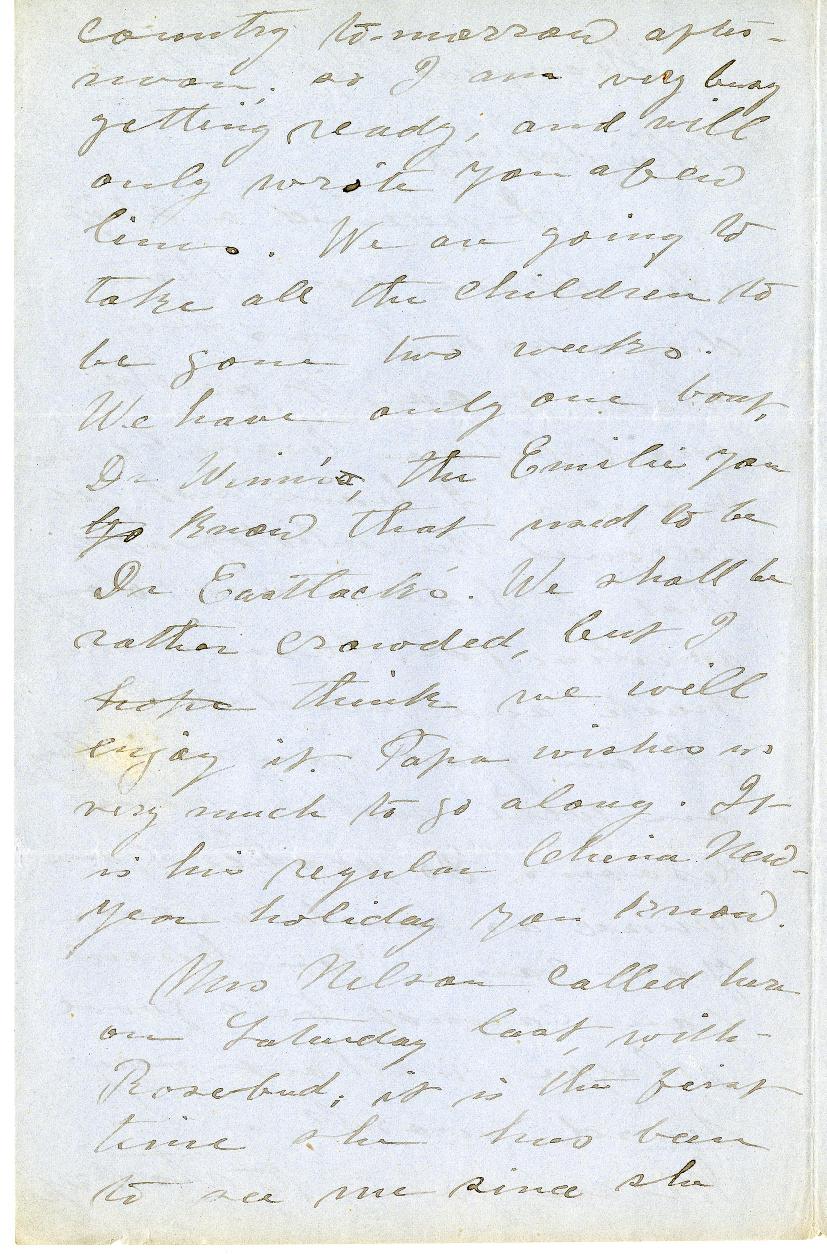 country to-morrow after-
noon, so I am very busy
getting ready, and will
only write you a few
lines. We are going to
take all the children to
be gone two weeks.
We have only one boat,
Dr Winn's, the Emilie you
go know that used to be
Dr Eastlack's. We shall be
rather crowded, but I
hope think we will
enjoy it. Papa wishes us
very much to go along. It
is his regular China New-
Year holiday you know.
Mrs Nelson called here
on Saturday last, with
Rosebud, it is the first
time she has been
to see me since she